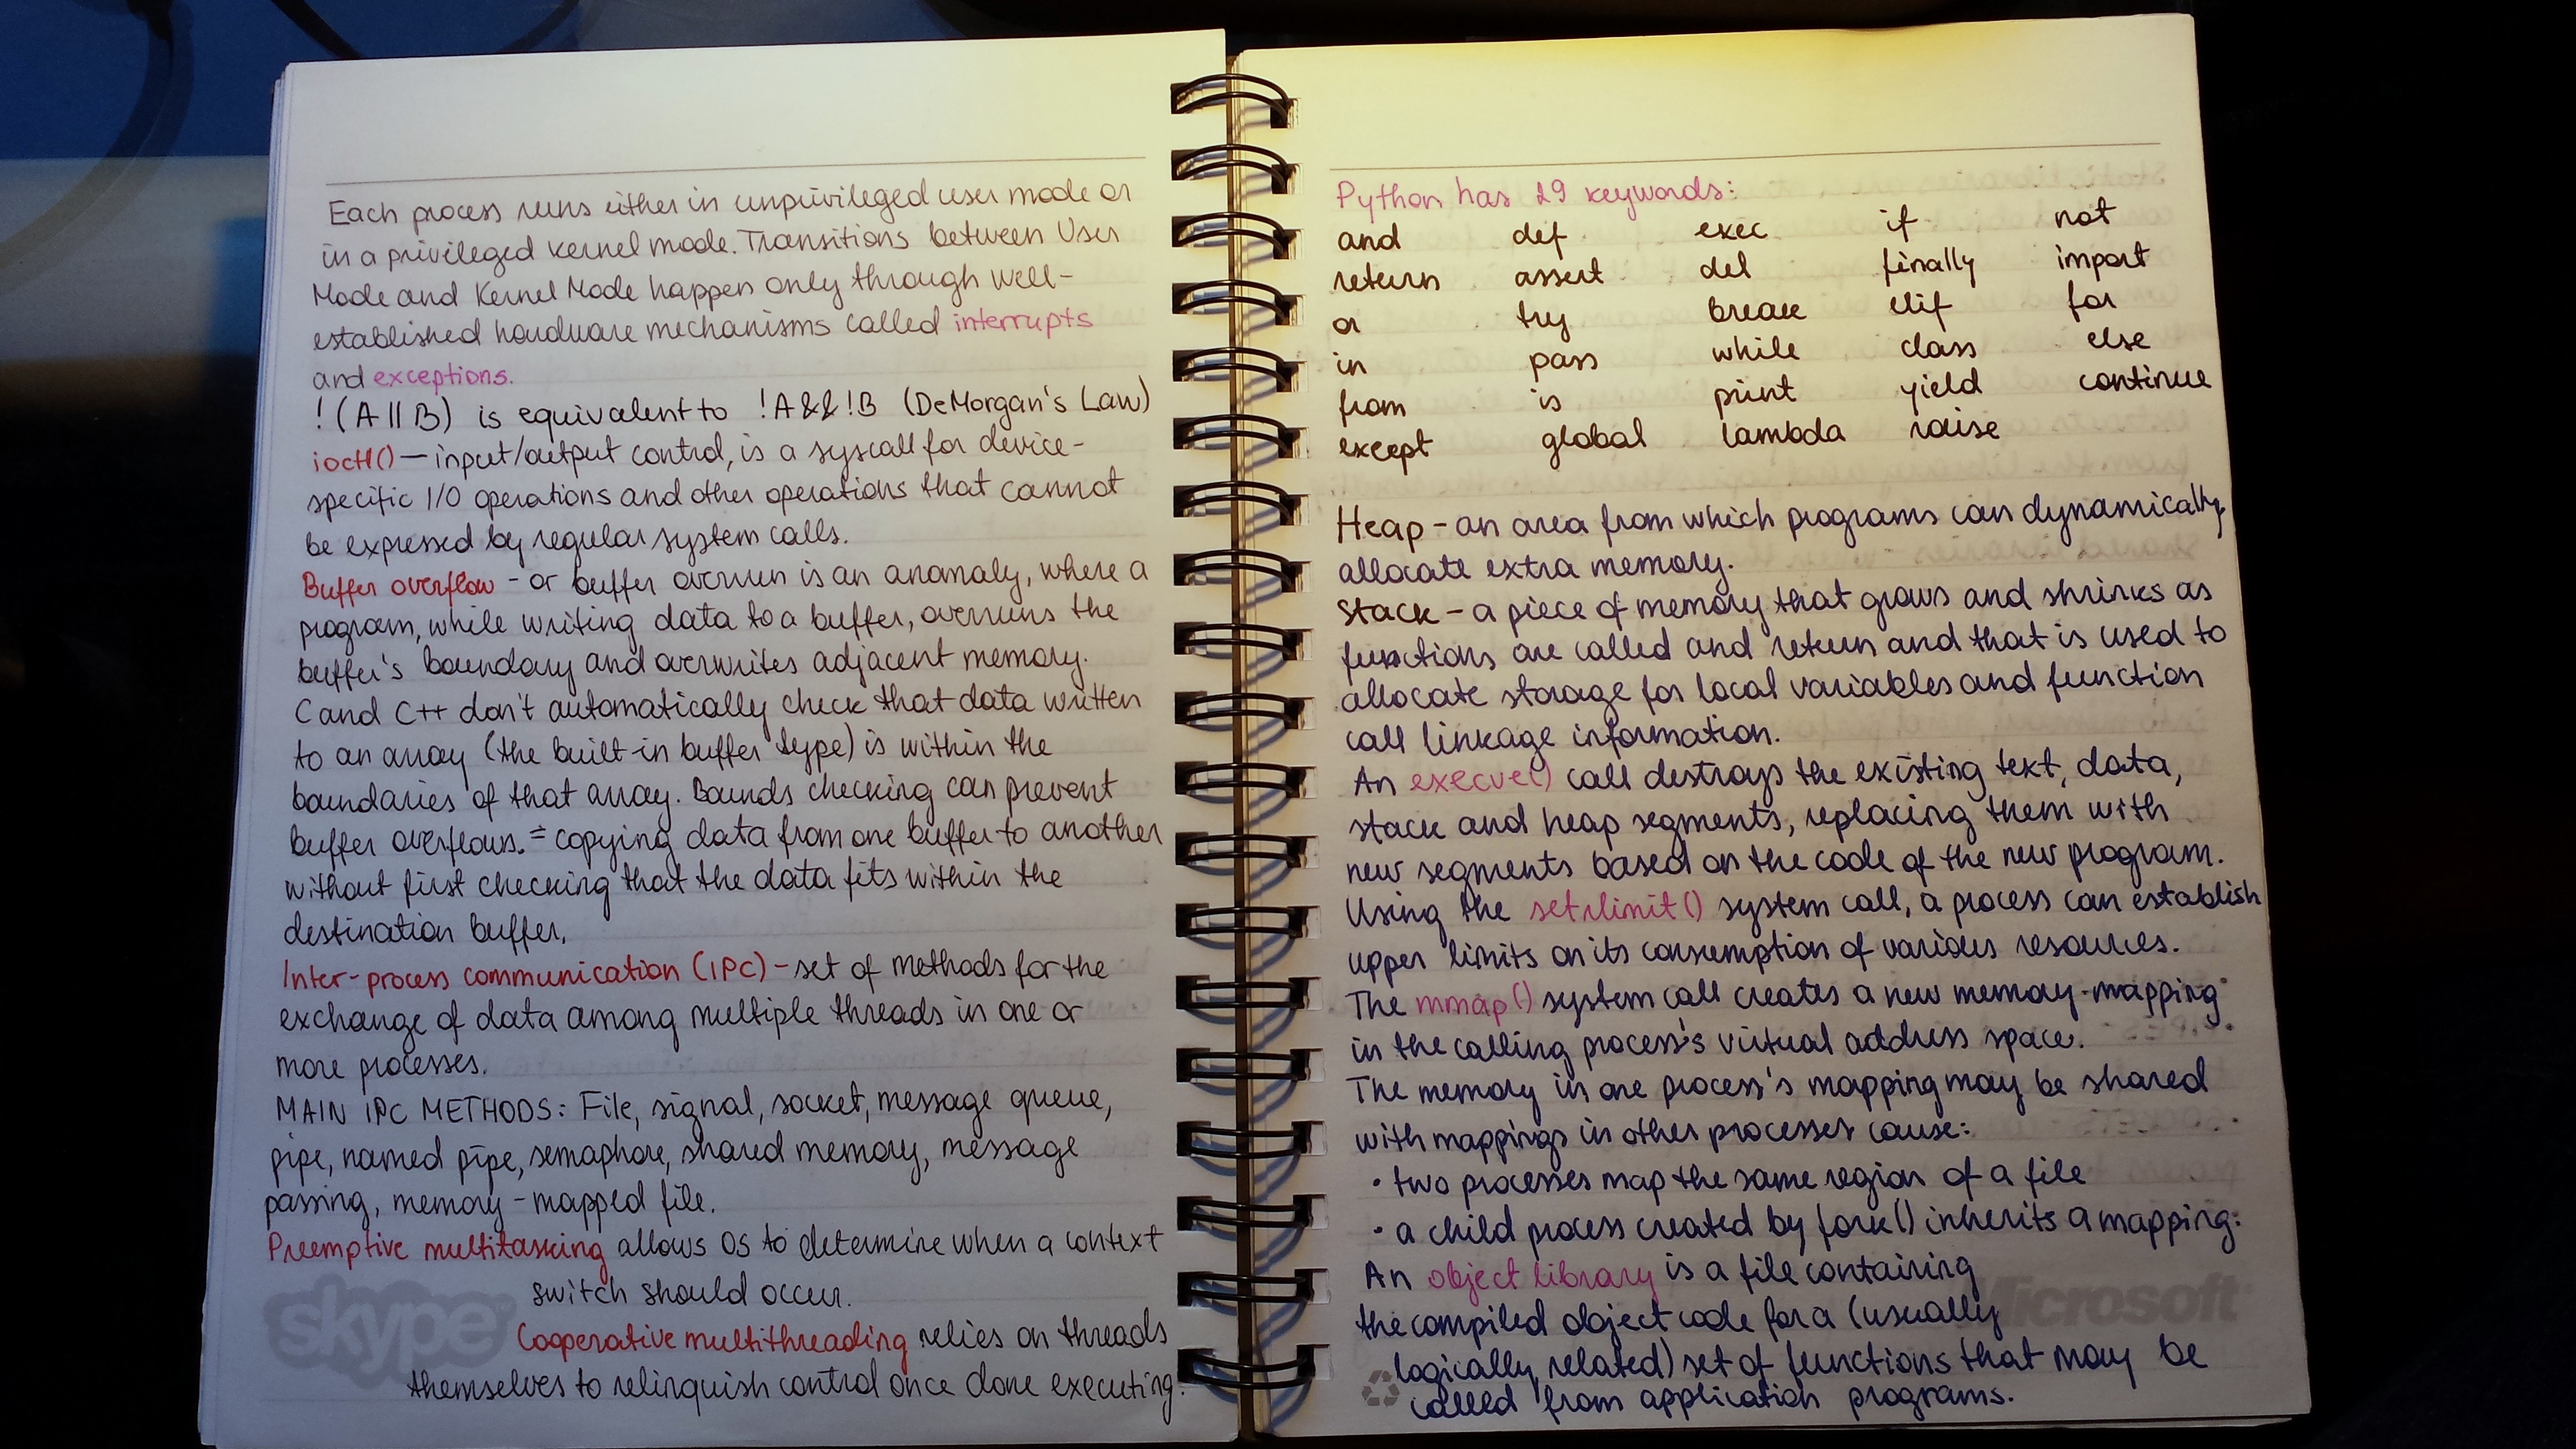 Each process runs either in unprivileged user mode or
in a privileged kernel mode. Transitions between User
Mode and Kernel Mode happen only through well-
established hardware mechanisms called interrupts
and exceptions.
!(A||B) is equivalent to !A&&!B (DeMorgan's Law)
ioctl() — input/output control, is a syscall for device-
specific I/O operations and other operations that cannot
be expressed by regular system calls.
Buffer overflow - or buffer overrun is an anomaly, where a
program, while writing data to a buffer, overruns the
buffer's boundary and overwrites adjacent memory.
C and C++ don't automatically check that data written
to an array (the built-in buffer type) is within the
boundaries of that array. Bounds checking can prevent
buffer overflows. = copying data from one buffer to another
without first checking that the data fits within the
destination buffer.
Inter-process communication (IPC) - set of methods for the
exchange of data among multiple threads in one or
more processes.
MAIN IPC METHODS: File, signal, socket, message queue,
pipe, named pipe, semaphore, shared memory, message
passing, memory-mapped file.
Preemptive multitasking allows OS to determine when a context
switch should occur.
Cooperative multithreading relies on threads
themselves to relinquish control once done executing.
skype
Python has 29 keywords:
and def exec if not
return assert del finally import
or try break elif for
in pass while class else
from is print yield continue
except global lambda raise
Heap - an area from which programs can dynamically
allocate extra memory.
Stack - a piece of memory that grows and shrinks as
functions are called and return and that is used to
allocate storage for local variables and function
call linkage information.
An execve() call destroys the existing text, data,
stack and heap segments, replacing them with
new segments based on the code of the new program.
Using the setrlimit() system call, a process can establish
upper limits on its consumption of various resources.
The mmap() system call creates a new memory-mapping
in the calling process's virtual address space.
The memory in one process's mapping may be shared
with mappings in other processes cause:
• two processes map the same region of a file
• a child process created by fork() inherits a mapping.
An object library is a file containing
the compiled object code for a (usually
logically related) set of functions that may be
called from application programs.
Microsoft